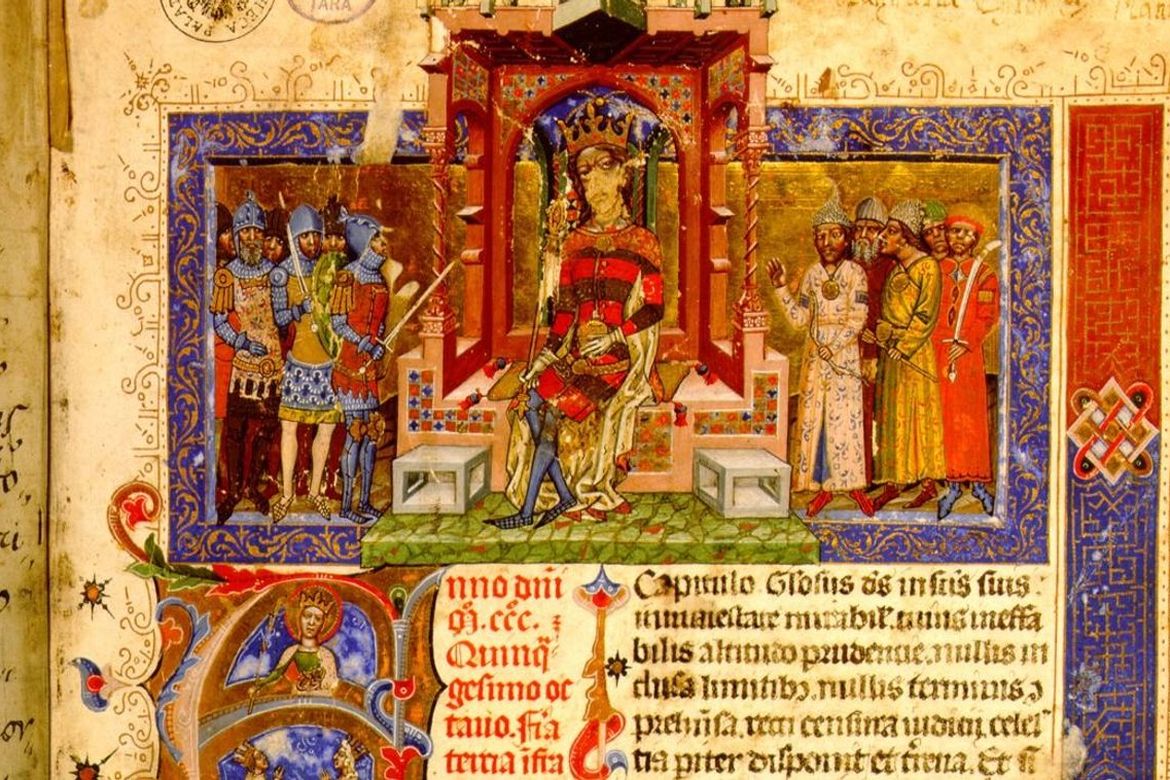 TARA
nno dn̄i
m̊. cc̄c. ꝫ
Quinq̄
gesimo oc
tauo. fīa
tercia īfra
Capitulo Gl̄osus ds̄ in sc̄is suis.
in maiestate mirabil'. cuius ineffa
bilis altitudo prudencie. nullis in
clusa limitibꝫ. nullis terminis ꝯ
prehēsa. recti censura iudicij celes
tia pariter disponit et t̄rena. Et si